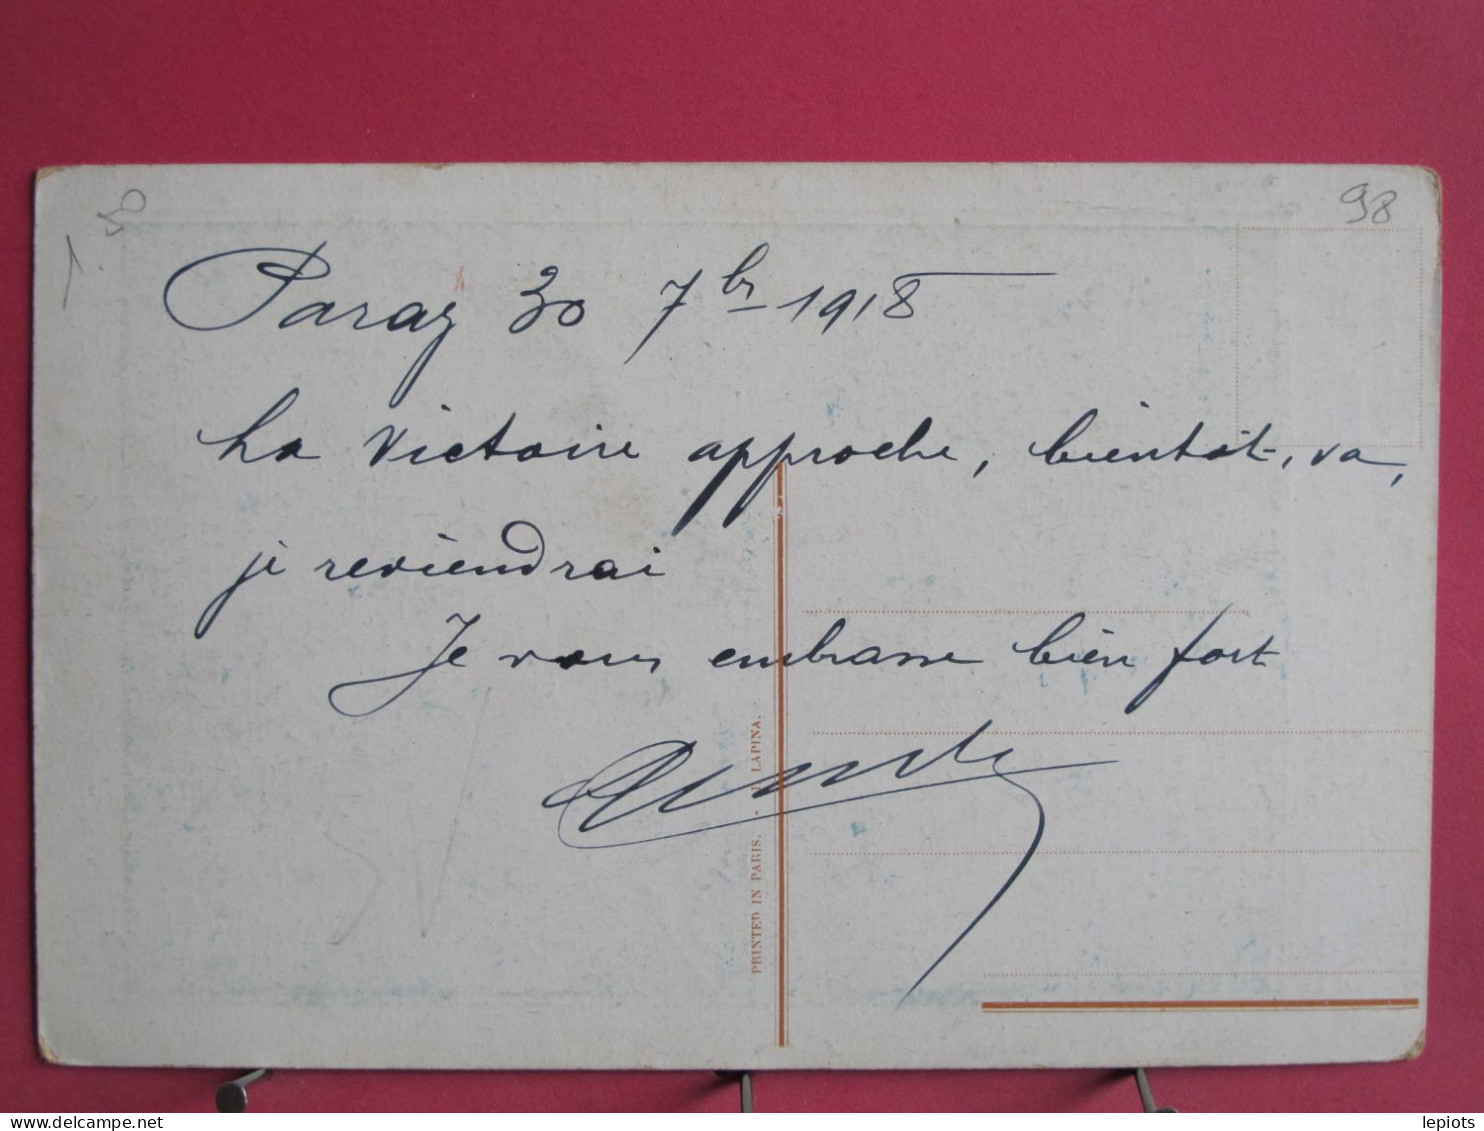 1.50
98
Paray 30 7bre 1918
La Victoire approche, bientôt, va,
je reviendrai
Je vous embrasse bien fort
PRINTED IN PARIS. - I. LAPINA.
delcampe.net
lepiots